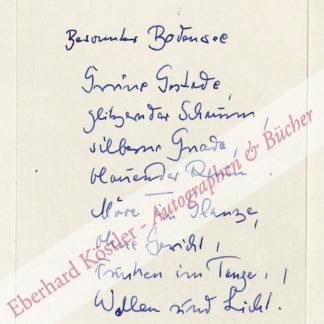 Besonnter Bodensee
Grüne Gestade,
glitzernder Schaum,
silberne Gnade,
blauender
Möwe im Glanze,
ohne Gewicht,
im Tanze,
Wellen und Licht.
Eberhard Köstler - Autographen & Bücher